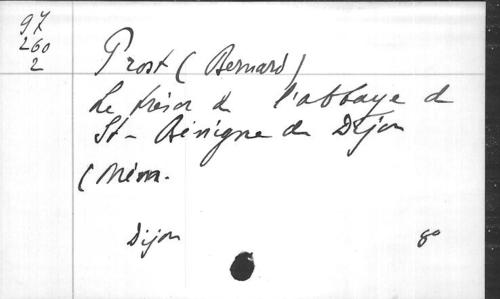 97
260
2
Prost (Bernard)
Le trésor de l'abbaye de
St-Bénigne de Dijon
(Mém.
Dijon 8°